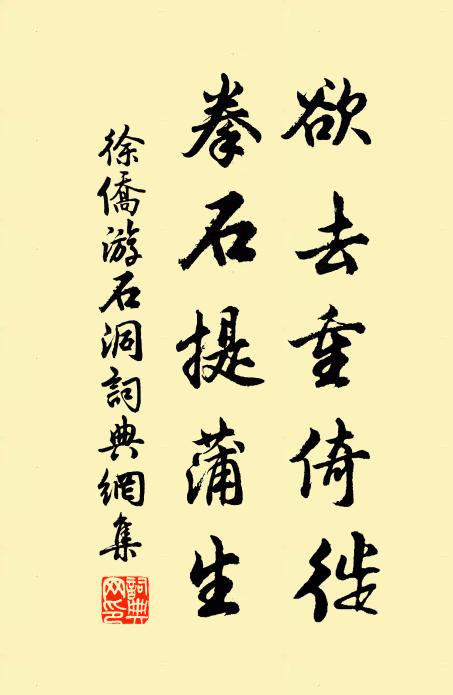 欲去重倚徙
拳石提蒲生
徐僑游石洞詞典網集
詞典網印